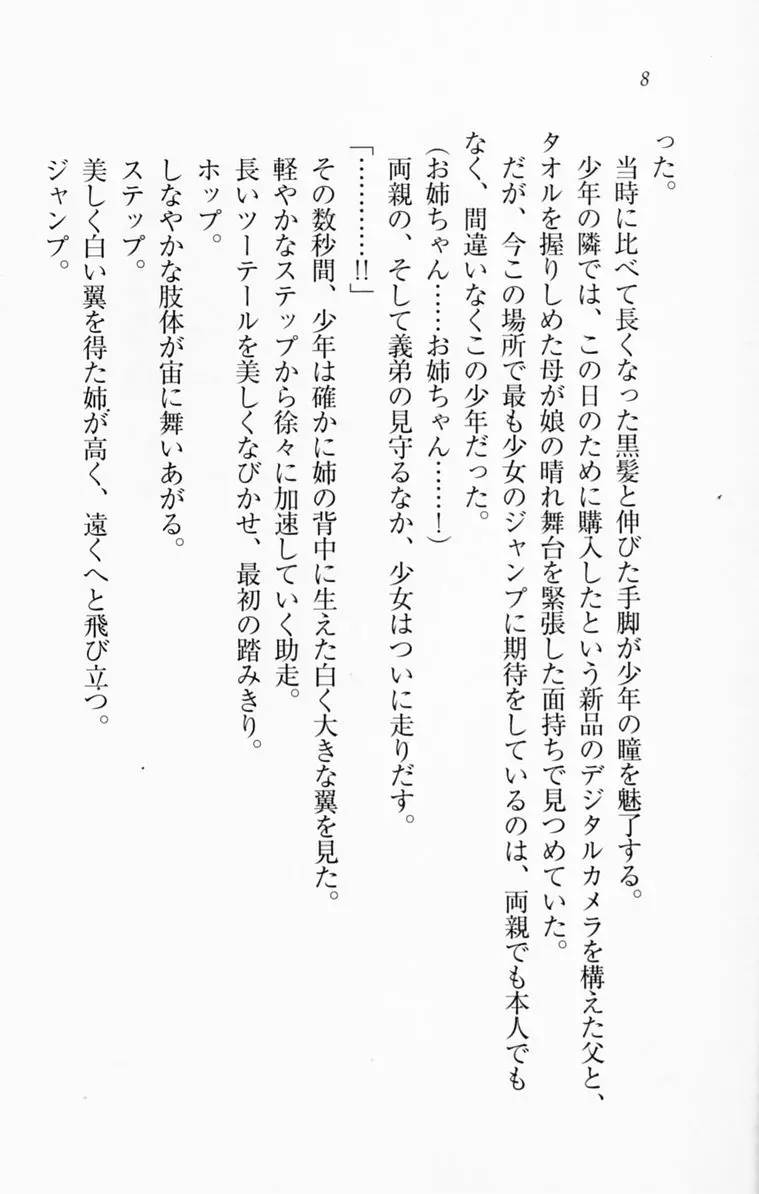 8
った。
当時に比べて長くなった黒髪と伸びた手脚が少年の瞳を魅了する。
少年の隣では、この日のために購入したという新品のデジタルカメラを構えた父と、
タオルを握りしめた母が娘の晴れ舞台を緊張した面持ちで見つめていた。
だが、今この場所で最も少女のジャンプに期待をしているのは、両親でも本人でも
なく、間違いなくこの少年だった。
（お姉ちゃん……お姉ちゃん……！）
両親の、そして義弟の見守るなか、少女はついに走りだす。
「…………!!」
その数秒間、少年は確かに姉の背中に生えた白く大きな翼を見た。
軽やかなステップから徐々に加速していく助走。
長いツーテールを美しくなびかせ、最初の踏みきり。
ホップ。
しなやかな肢体が宙に舞いあがる。
ステップ。
美しく白い翼を得た姉が高く、遠くへと飛び立つ。
ジャンプ。